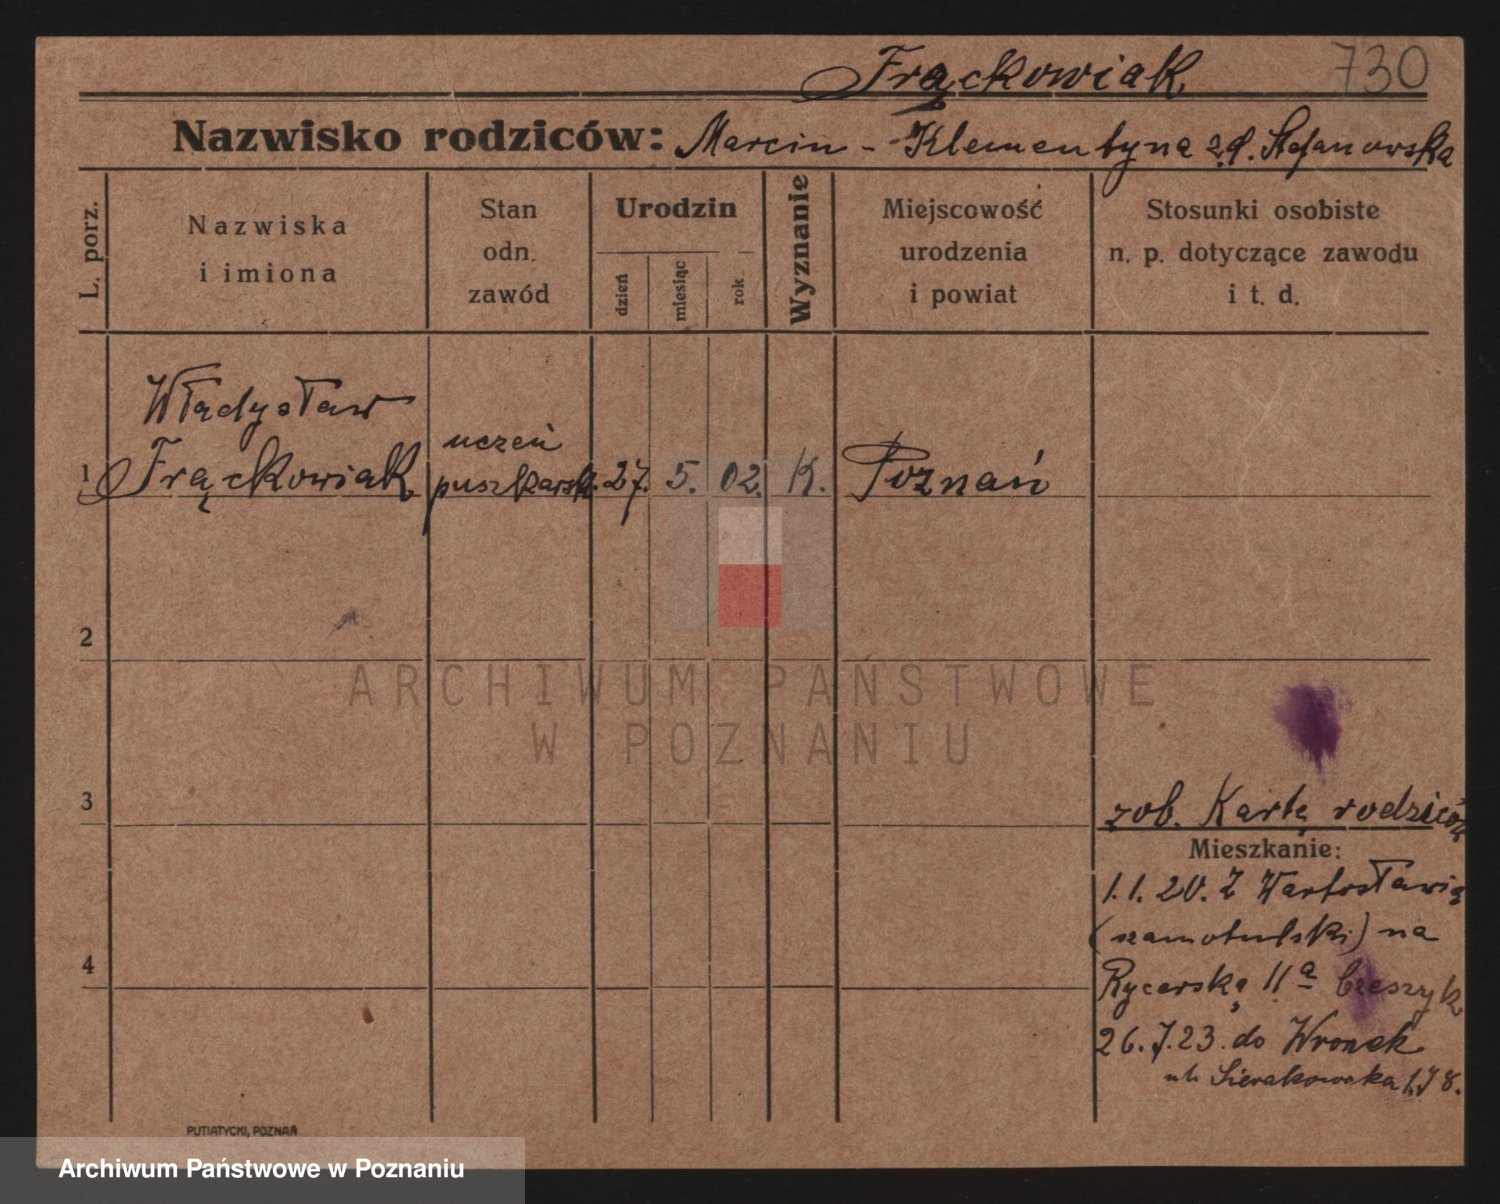 Frąckowiak 730
Nazwisko rodziców: Marcin - Klementyna z d. Stefanowska
L. porz.
Nazwiska
i imiona
Stan
odn.
zawód
Urodzin
dzień
miesiąc
rok
Wyznanie
Miejscowość
urodzenia
i powiat
Stosunki osobiste
n. p. dotyczące zawodu
i t. d.
Władysław
uczeń
1 Frąckowiak puszkarsk. 27. 5. 02. K. Poznań
2
ARCHIWUM PAŃSTWOWE
W POZNANIU
3
zob. Kartę rodziców
Mieszkanie:
1.1.20. Z Wartosławia
(szamotulski) na
4
Rycerską 11a
26.7.23. do Wronek
ul. Sierakowska
PUTIATYCKI, POZNAŃ
Archiwum Państwowe w Poznaniu